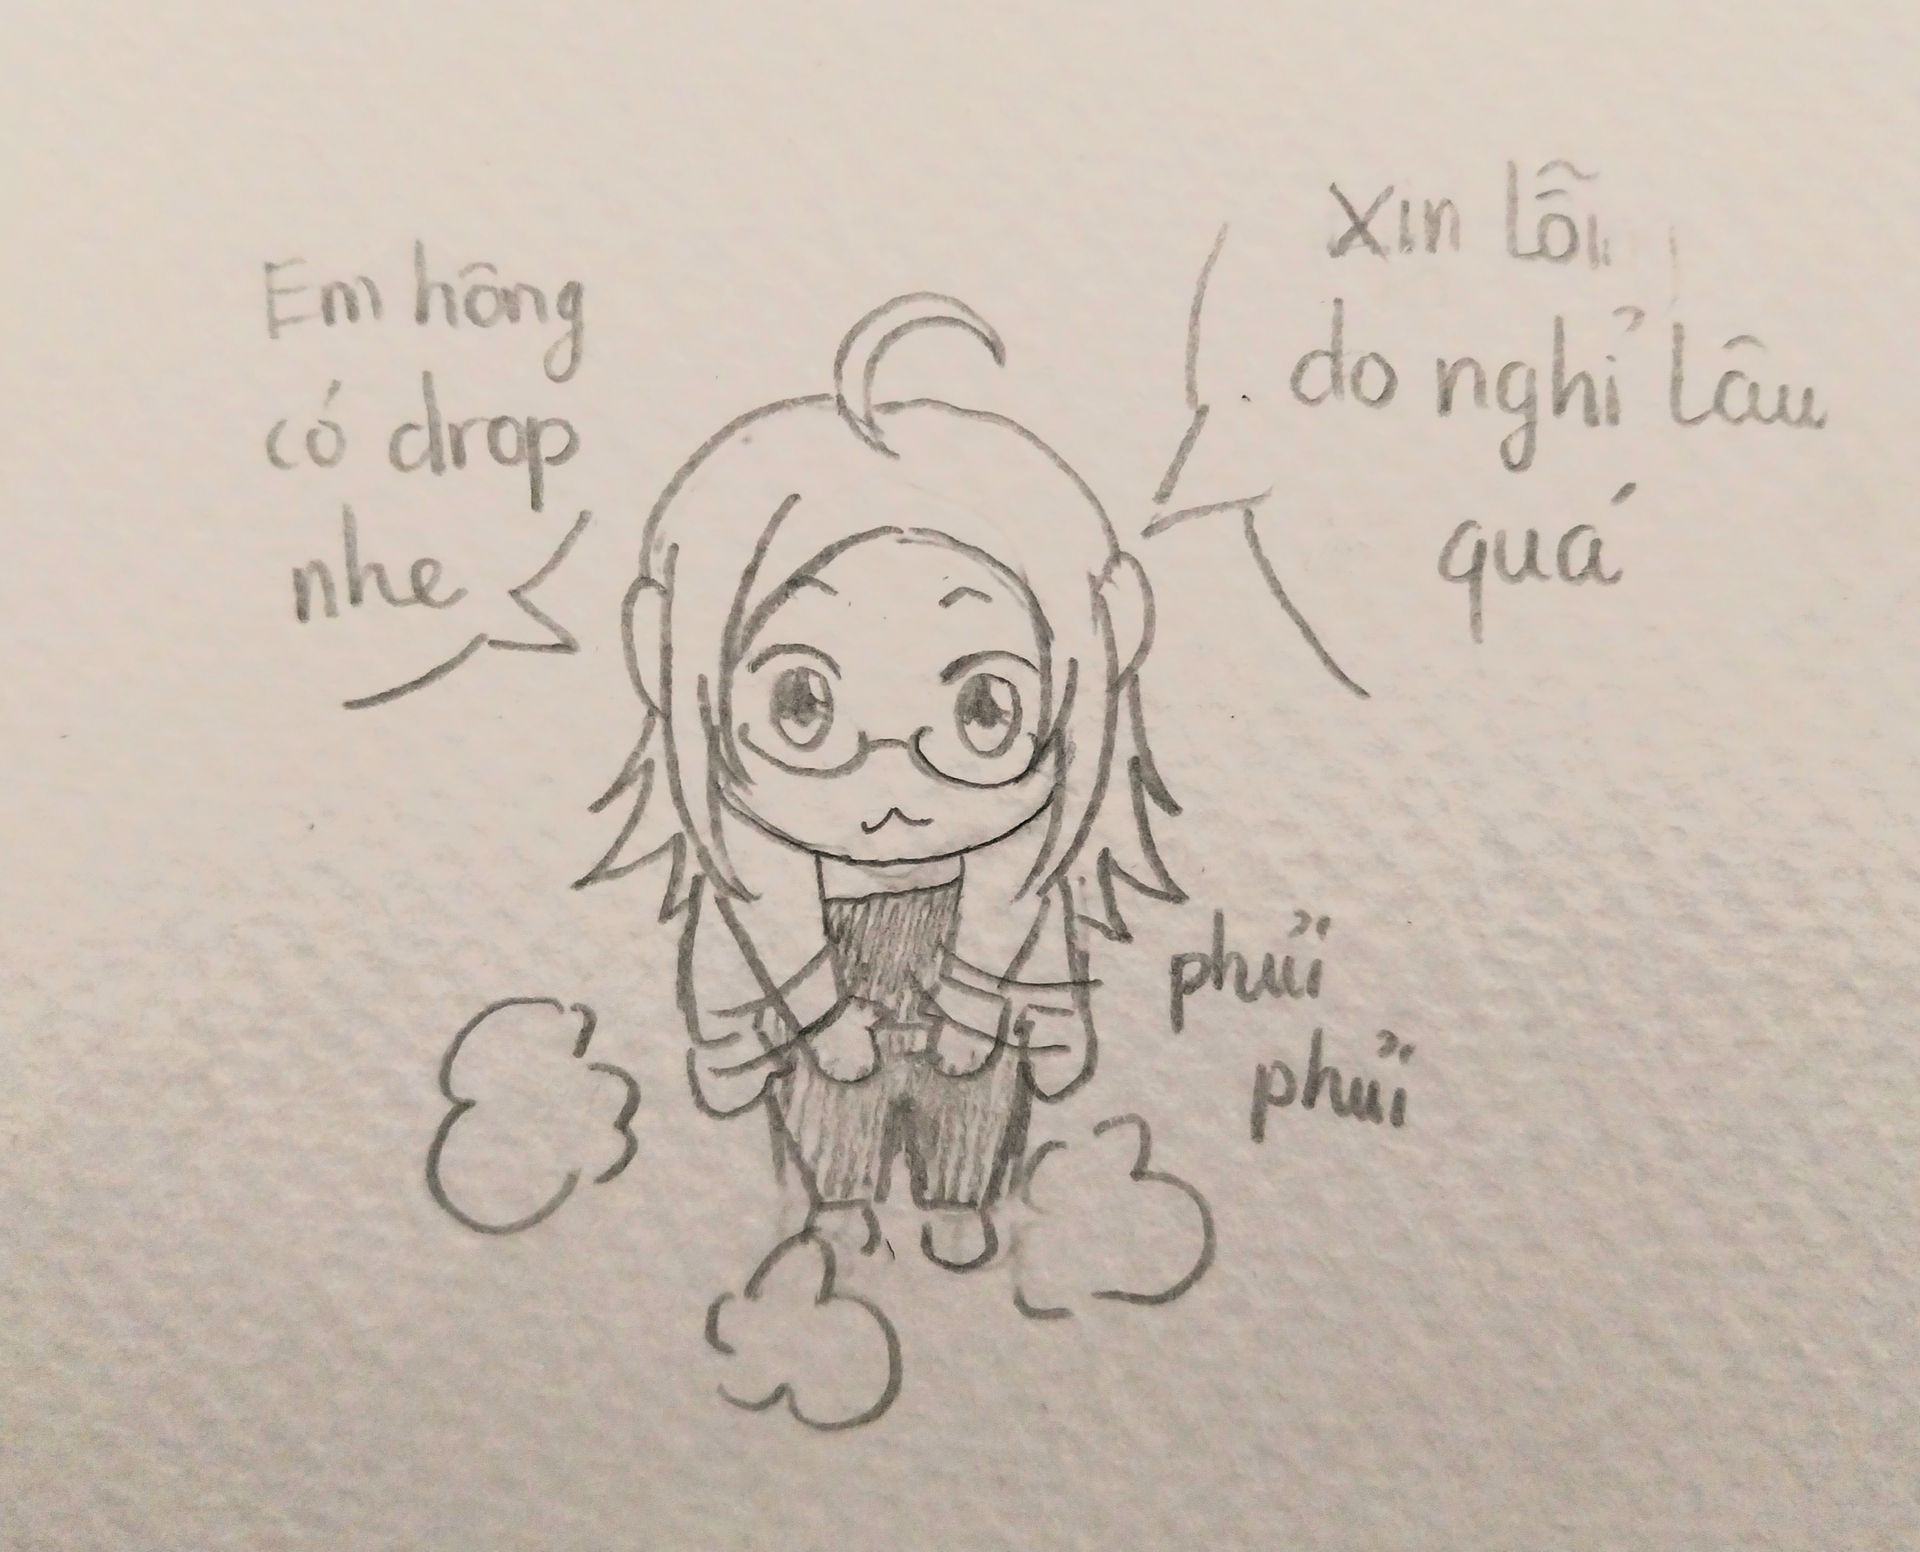 Em hông
có drop
nhe
Xin lỗi
do nghỉ lâu
quá
phủi
phủi